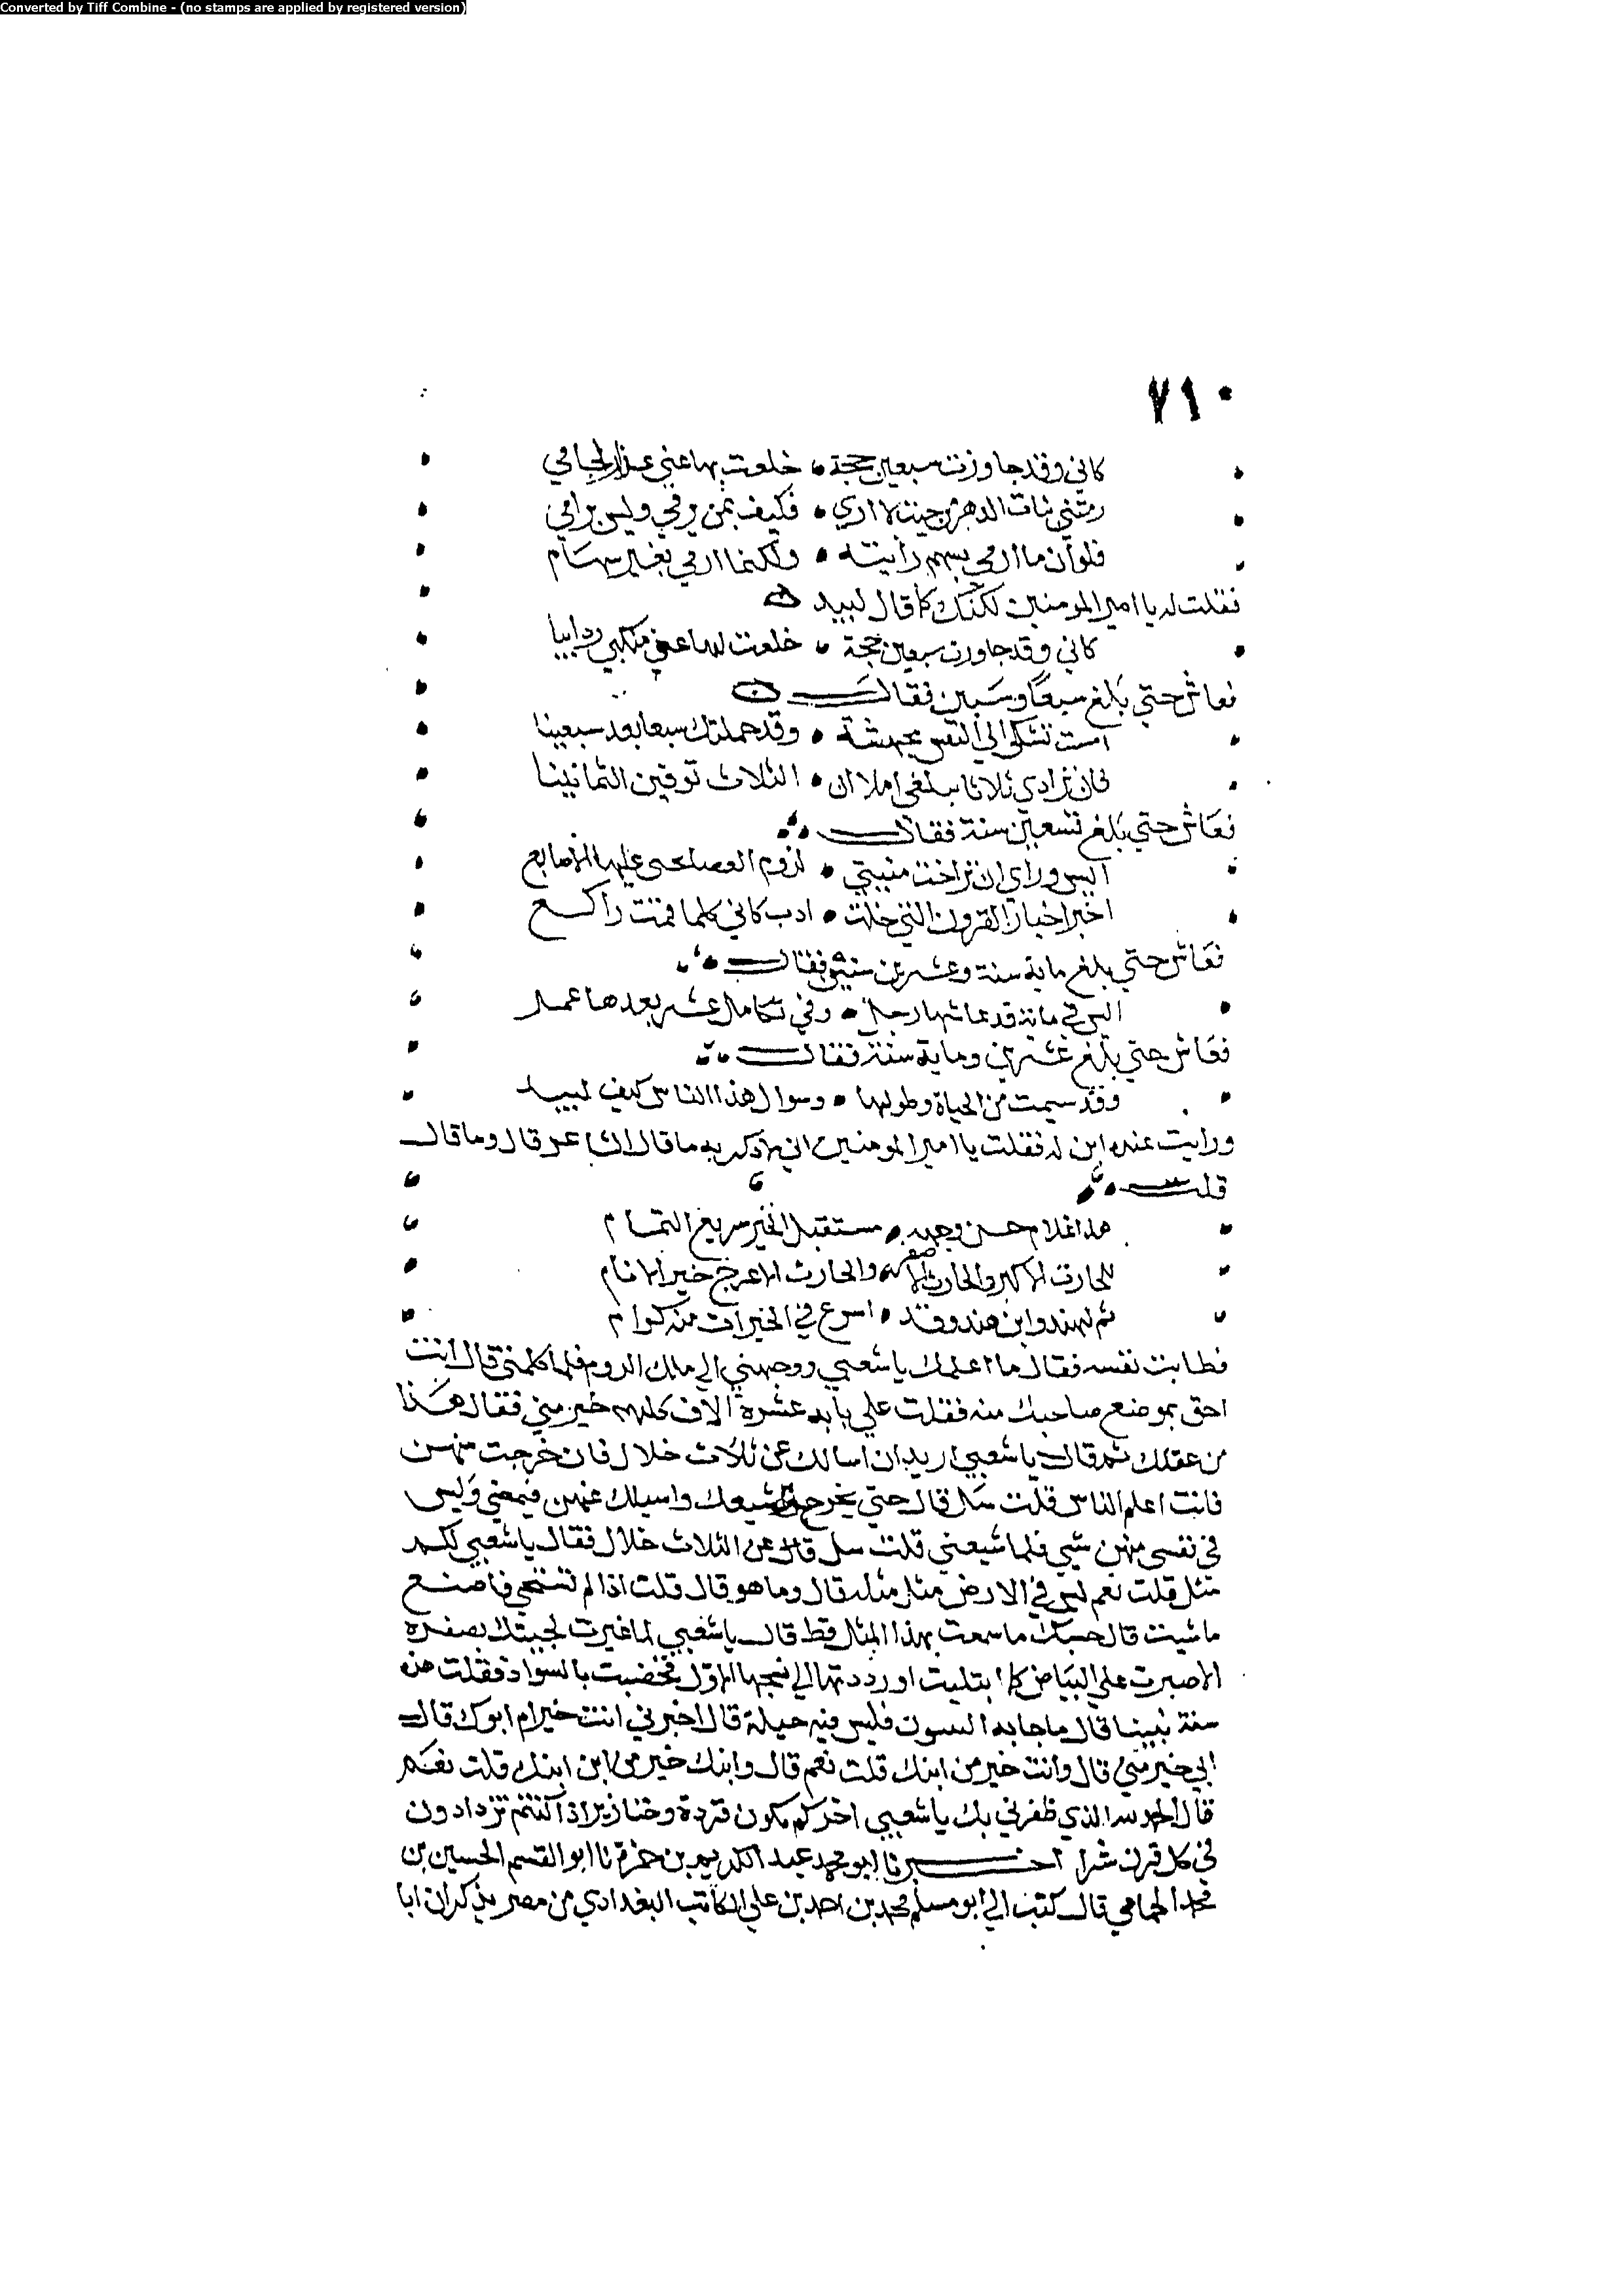 Converted by Tiff Combine - (no stamps are applied by registered version)
٧١٠
كاني وقد جاوزت سبعين حجة • خلعت بها عني عذار لجامي
رمتني بنات الدهر من حيث لا اري • فكيف بمن يرمي وليس برامي
فلو أن ما ارمي بسهم رأيته • ولكنما ارمي بغير سهام
فقلت له يا امير المومنين لكنك كما قال لبيد
كاني وقد جاوزت سبعين حجة • خلعت بها عن منكبي ردايبا
فعاش حتي بلغ سبعا وسبعين فقال
امست تشكوا الي النفس مجهشة • وقد حملتك سبعا بعد سبعينا
فان تزادي ثلاثا تبلغي املا ان • الثلاث توفين الثمانينا
فعاش حتي بلغ تسعين سنة فقال
اليس وراي ان تراخت منيتي • لزوم العصا تحني عليها الاصابع
اخبر اخبار القرون التي خلت • ادب كاني كلما قمت راكع
فعاش حتي بلغ ماية سنة وعشر سنين فقال
اليس في مائة قد عاشها رجل • وفي تكامل عشر بعدها عمر
فعاش حتي بلغ عشرين وماية سنة فقال
وقد سيمت من الحياة وطولها • وسوال هذا الناس كيف لبيد
ورايت عنده ابن له فقلت يا امير المومنين اني لاذكر به ما قال الشاعر قال وما قال
قلت
هذا غلام حسن وجهه • مستقبل الخير سريع التمام
للحارث الاكبر والحارث الاصغر • والحارث الاعرج خير الانام
ثم لهند وابن هند وقد • اسرع في الخيرات منه كرام
فطابت نفسه فقال ما اعلمك يا شعبي ووجهني الي ملك الروم فلما كلمني قال انت
احق بموضع صاحبك منه فقلت علي بابه عشرة الاف كلهم خير مني فقال هذا
من عقلك ثم قال يا شعبي اريد ان اسالك عن ثلاث خلال فان خرجت منهن
فانت اعلم الناس قلت سل قال حتي يخرج اشيعك واسيلك عنهن فيمضي وليس
في نفسي منهن شي فلما شيعني قلت سل قال عن الثلاث خلال فقال يا شعبي لكم
مثل قلت نعم ليس في الارض مثل مثله قال وما هو قال قلت اذا لم تستحي فاصنع
ما شيت قال حسبك ما سمعت بهذا المثل قط قال يا شعبي لما غيرت لحيتك بصفره
الا صبرت علي البياض كما ابتليت او رددتها الي نجمها الاول فخضبت بالسواد فقلت هذه
سنة نبينا قال ما جا به النبيون فليس فيه حيلة قال اخبرني انت خير ام ابوك قال
ابي خير مني قال وانت خير من ابنك قلت نعم قال وابنك خير من ابن ابنك قلت نعم
قال الحمد لله الذي ظفرني بك يا شعبي اخركم يكون قردة وخنازير اذا كنتم تزدادون
في كل قرن شرا اخبرنا ابو محمد عبد الكريم بن حمزة نا ابو القسم الحسين بن
محمد الحمامي قال كتب الي ابو مسلم محمد بن احمد بن علي الكاتب البغدادي من مصر يذكر ان ابا